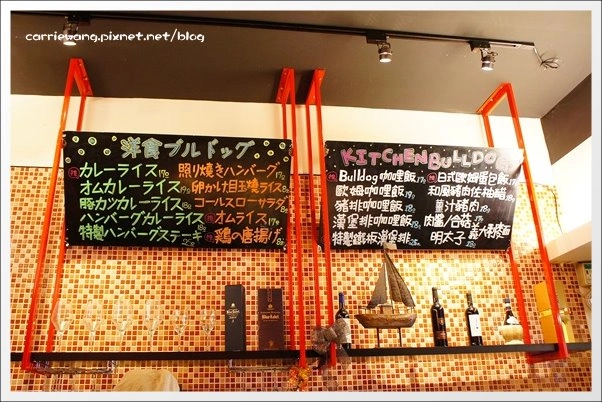 carriewang.pixnet.net/blog
洋食ブルドッグ
カレーライス
オムカレーライス
豚カツカレーライス
ハンバーグカレーライス
特製ハンバーグステーキ
照り焼きハンバーグ
卵かけ目玉燒ライス
コールスローサラダ
オムライス
鶏の唐揚げ
KITCHEN BULLDOG
Bulldog咖哩飯
歐姆咖哩飯
豬排咖哩飯
漢堡排咖哩飯
特製鐵板漢堡排
日式歐姆蛋包飯
和風豬肉佐柚醋
薑汁豬肉
明太子